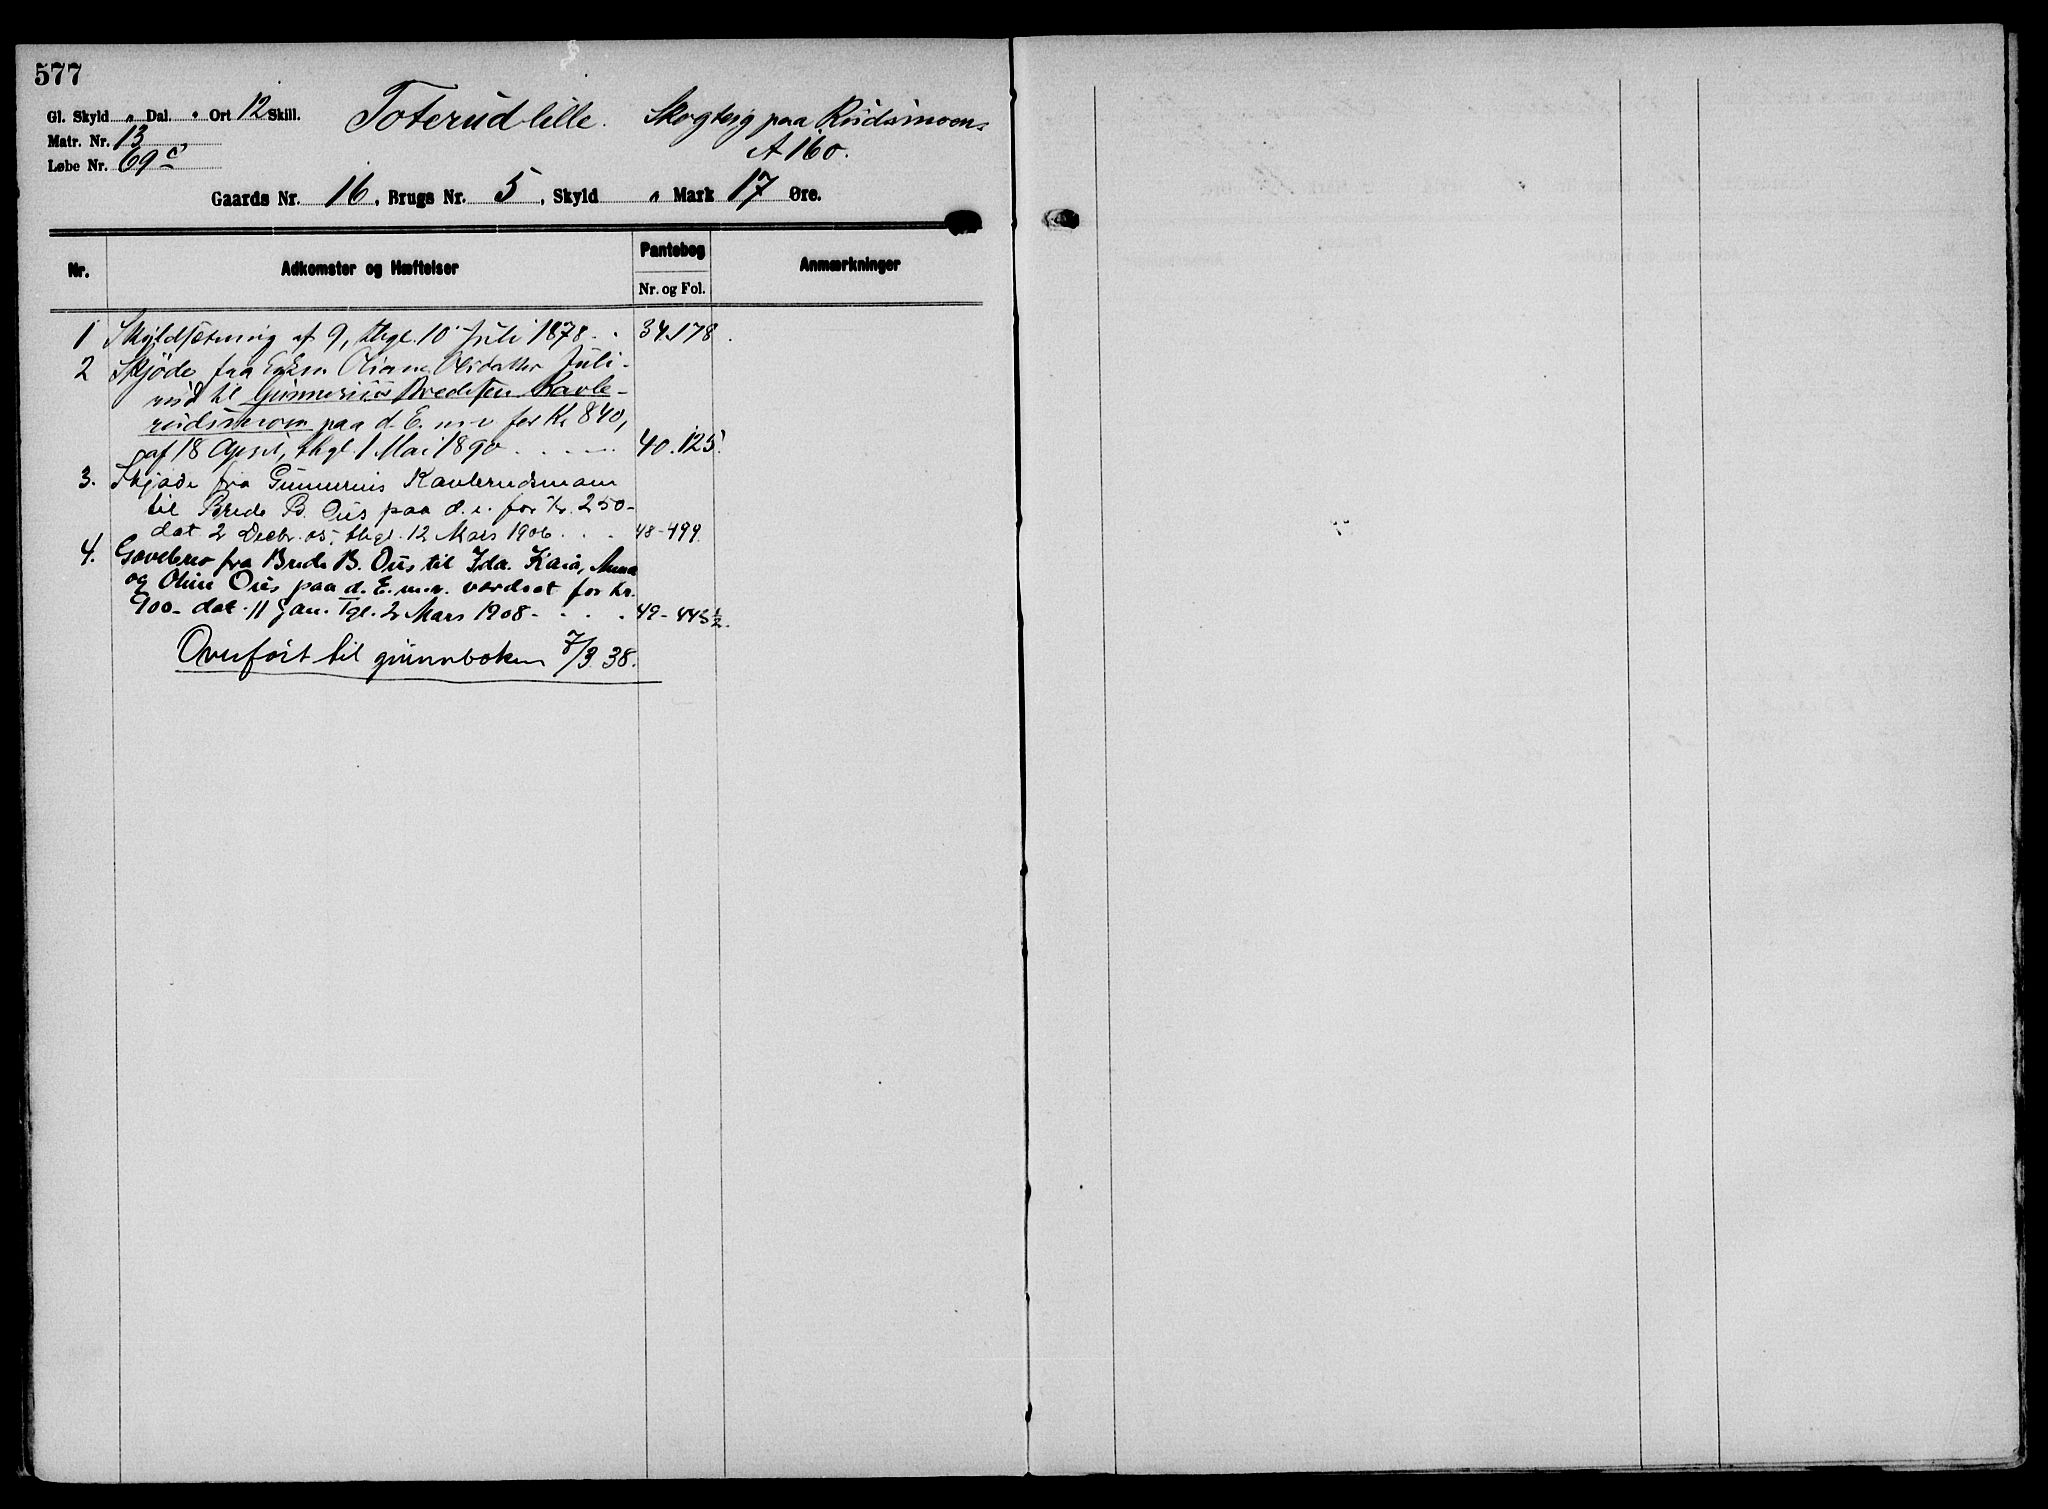 577
Gl. Skyld „ Dal. „ Ort 12 Skill. Toterud lille. Skogteig paa Rudsmoen.
Matr. Nr. 13 A 160.
Løbe Nr. 69 c
Gaards Nr. 16, Brugs Nr. 5, Skyld „ Mark 17 Øre.
Nr. Adkomster og Hæftelser Pantebog Nr. og Fol. Anmærkninger
1 Skyldsetning af 9, thgl. 10 Juli 1878. 34.178.
2 Skjøde fra Oliane Olsdatter Juli-
rud til Gunnerius Bredesen Kavle-
rudsmoen paa d. E. m v for Kr 840,
af 18 April, thgl. 1 Mai 1890 40.125.
3. Skjøde fra Gunnerius Kavlerudsmoen
til Brede B. Ous paa d. e. for kr. 250-
dat 2 Decbr. 05, thgl. 12 Mars 1906 48-499.
4. Gavebrev fra Brede B. Ous til Ida, Kaia, Anna
og Oline Ous paa d. E. m.v. værdsat for kr.
900- dat. 11 Jan. Tgl. 2 Mars 1908 - 49-445½.
Overført til grunnboken 7/3 38.